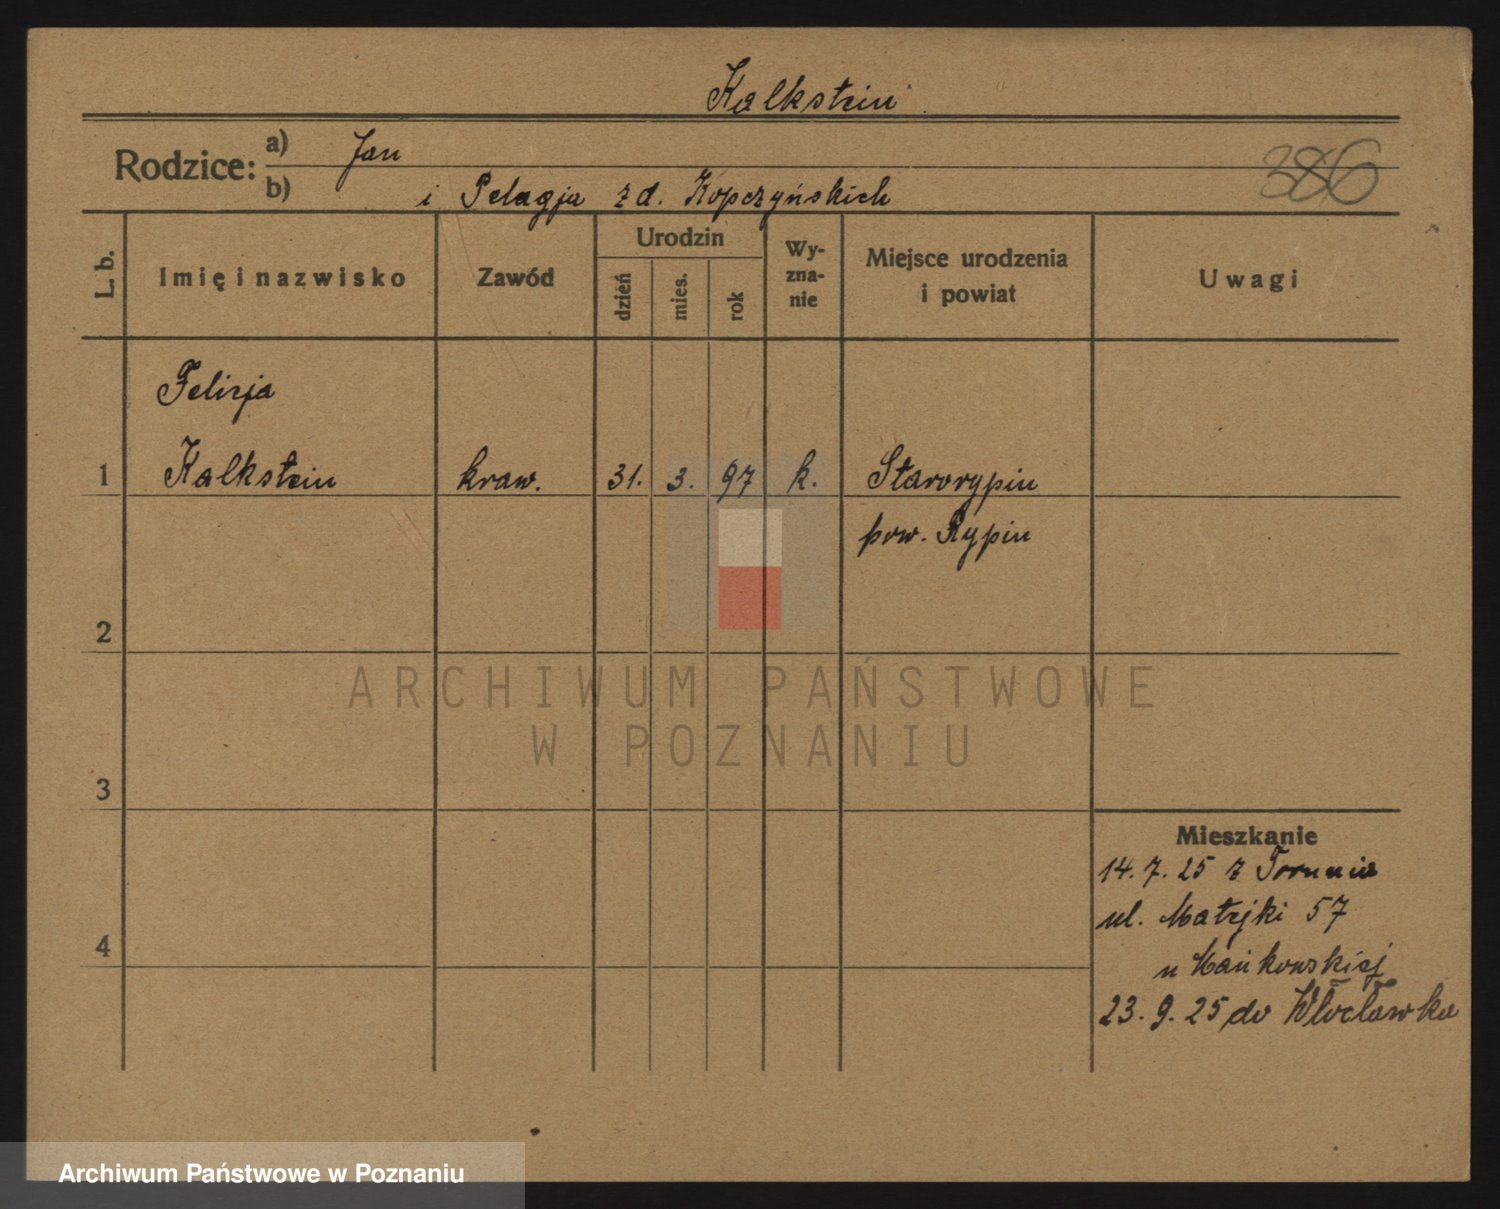 Kalkstein
386
Rodzice:
a) Jan
b) i Pelagja z d. Kopczyńskich
L. b.
Imię i nazwisko
Zawód
Urodzin
dzień
mies.
rok
Wy-
zna-
nie
Miejsce urodzenia
i powiat
Uwagi
Felicja
1 Kalkstein kraw. 31. 3. 97 k. Starorypin
pow. Rypin
2
ARCHIWUM PAŃSTWOWE
W POZNANIU
3
Mieszkanie
14. 7. 25 z Torunia
ul. Matejki 57
4
u Mańkowskiej
23. 9. 25 do Włocławka
Archiwum Państwowe w Poznaniu